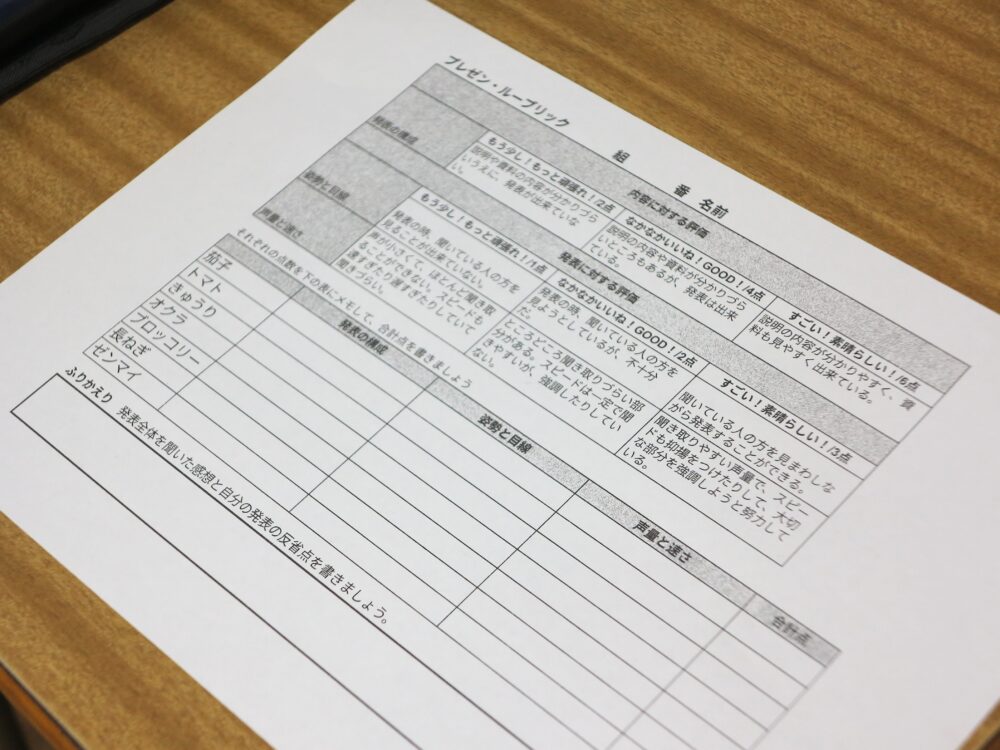 プレゼン・ルーブリック
組　番 名前
内容に対する評価
もう少し！もっと頑張れ！/2点　なかなかいいね！GOOD！/4点　すごい！素晴らしい！/6点
発表の構成
説明や資料の内容が分かりづら
いうえに、発表が出来ていな
い。
説明の内容や資料が分かりづら
いところもあるが、発表は出来
ている。
説明の内容が分かりやすく、資
料も見やすく出来ている。
発表に対する評価
もう少し！もっと頑張れ！/1点　なかなかいいね！GOOD！/2点　すごい！素晴らしい！/3点
姿勢と目線
発表の時、聞いている人の方を
見ることが出来ていない。
発表の時、聞いている人の方を
見ようとしているが、不十分
だ。
聞いている人の方を見まわしな
がら発表することができる。
声量と速さ
声が小さく、ほとんど聞き取
ることができない。スピードも
速すぎたり遅すぎたりしていて
聞きづらい。
ところどころ聞き取りづらい部
分がある。スピードは一定で聞
きやすいが、強調したりしてい
ない。
聞き取りやすい声量で、スピー
ドも抑揚をつけたりして、大切
な部分を強調しようと努力して
いる。
それぞれの点数を下の表にメモして、合計点を書きましょう
発表の構成　姿勢と目線　声量と速さ　合計点
茄子
トマト
きゅうり
オクラ
ブロッコリー
長ねぎ
ゼンマイ
ふりかえり　発表全体を聞いた感想と自分の発表の反省点を書きましょう。